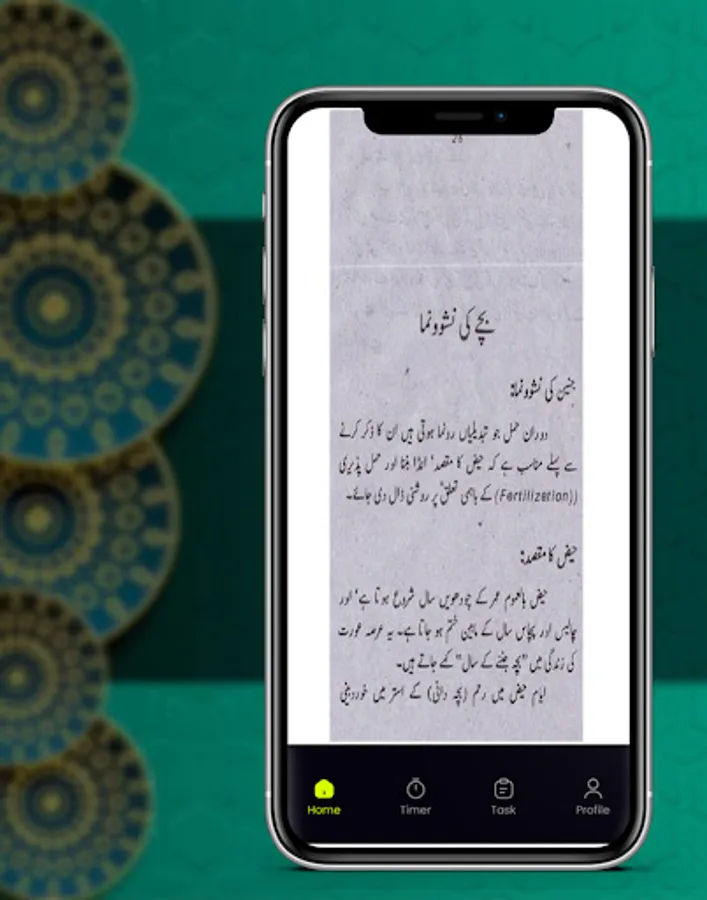 26
بچے کی نشوونما
جنین کی نشوونما:
دوران حمل جو تبدیلیاں رونما ہوتی ہیں ان کا ذکر کرنے
سے پہلے مناسب ہے کہ حیض کا مقصد' انڈا بننا اور حمل پذیری
((Fertilization) کے باہمی تعلق پر روشنی ڈال دی جائے۔
حیض کا مقصد:
حیض بالعموم عمر کے چودھویں سال شروع ہوتا ہے' اور
چالیس اور پچاس سال کے مابین ختم ہو جاتا ہے۔ یہ عرصہ عورت
کی زندگی میں "بچہ جننے کے سال" کہے جاتے ہیں۔
ایام حیض میں رحم (بچہ دانی) کے استر میں خوردبینی
Home Timer Task Profile